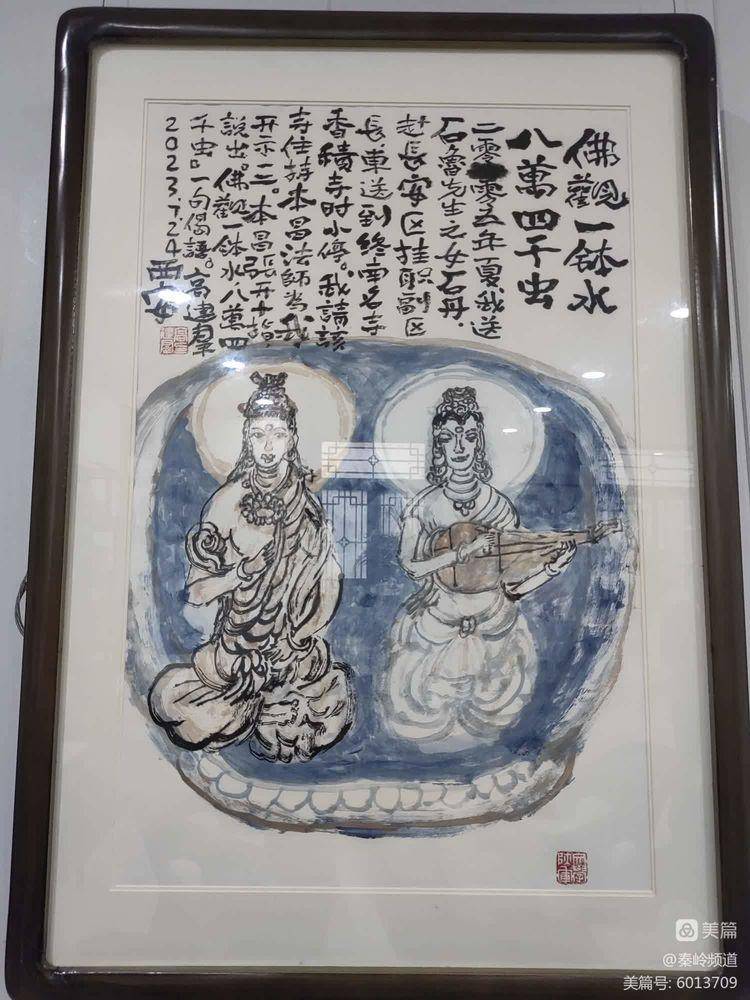 佛觀一鉢水
八萬四千虫
二零零五年夏,我送
石魯先生之女石丹,
赴長安区挂职副区
長,車送到終南名寺
香積寺时小停。我請該
寺住持本昌法師为我
开示一二。本昌張开
說出。佛觀一鉢水,八萬四
千虫。一句偈語。高建群
2023.7.24 西安
美篇
@秦岭频道
美篇号: 6013709